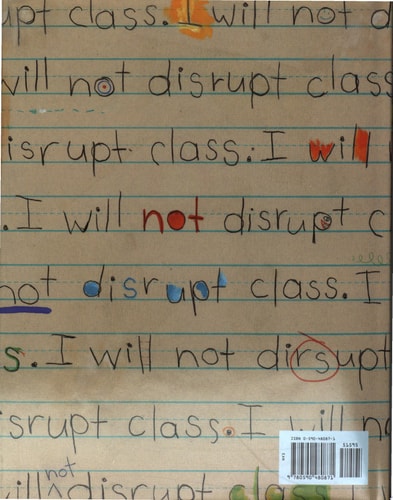 upt class. I will not d
will not disrupt class
isrupt class. I will
. I will not disrupt c
not disrupt class. I
s. I will not dirsupt
srupt class. I will no
ISBN 0-590-48087-1
51595
9 780590 480871
not
will disrupt class